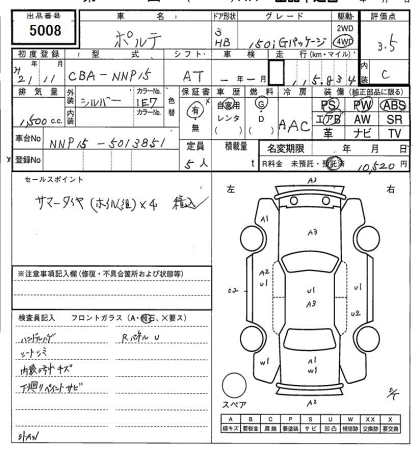 出品番号 車名 ドア形状 グレード 駆動 評価点
5008 ポルテ 3 HB 150i Gパッケージ 2WD 4WD 3.5
初度登録 型式 シフト 車検 走行(km・マイル) 内装
21 11 CBA-NNP15 AT 年 月 115,834 C
排気量 外装 シルバー カラーNo. 1E7 色替 保証書 車歴 燃料 冷房 装備(純正部品に限る)
1,500 c.c. 内装 カラーNo. 有・無 自家用 レンタ G D AAC PS PW ABS
エアB AW SR
革 ナビ TV
車台No NNP15-5013851 定員 積載量 名変期限 年 月 日
登録No 5人 t R料金 未預託・預託済 10,520円
セールスポイント
サマータイヤ(ホイル組)×4 積込
左 右
A2
A1
A3
A2
U1
U1
A3
U1
C2
U2
W1
A3
A2
W1
A2
※注意事項記入欄(修復・不具合箇所および状態等)
検査員記入 フロントガラス(A・飛石、×要ス)
ハンドルハゲ Rパネル U
シートシミ
内装ヨゴレ キズ
下廻リペイント サビ
スペア
A B C P S U W X XX
線キズ 要板金 腐蝕 要塗装 サビ 凹凸 補修跡 交換跡 要交換